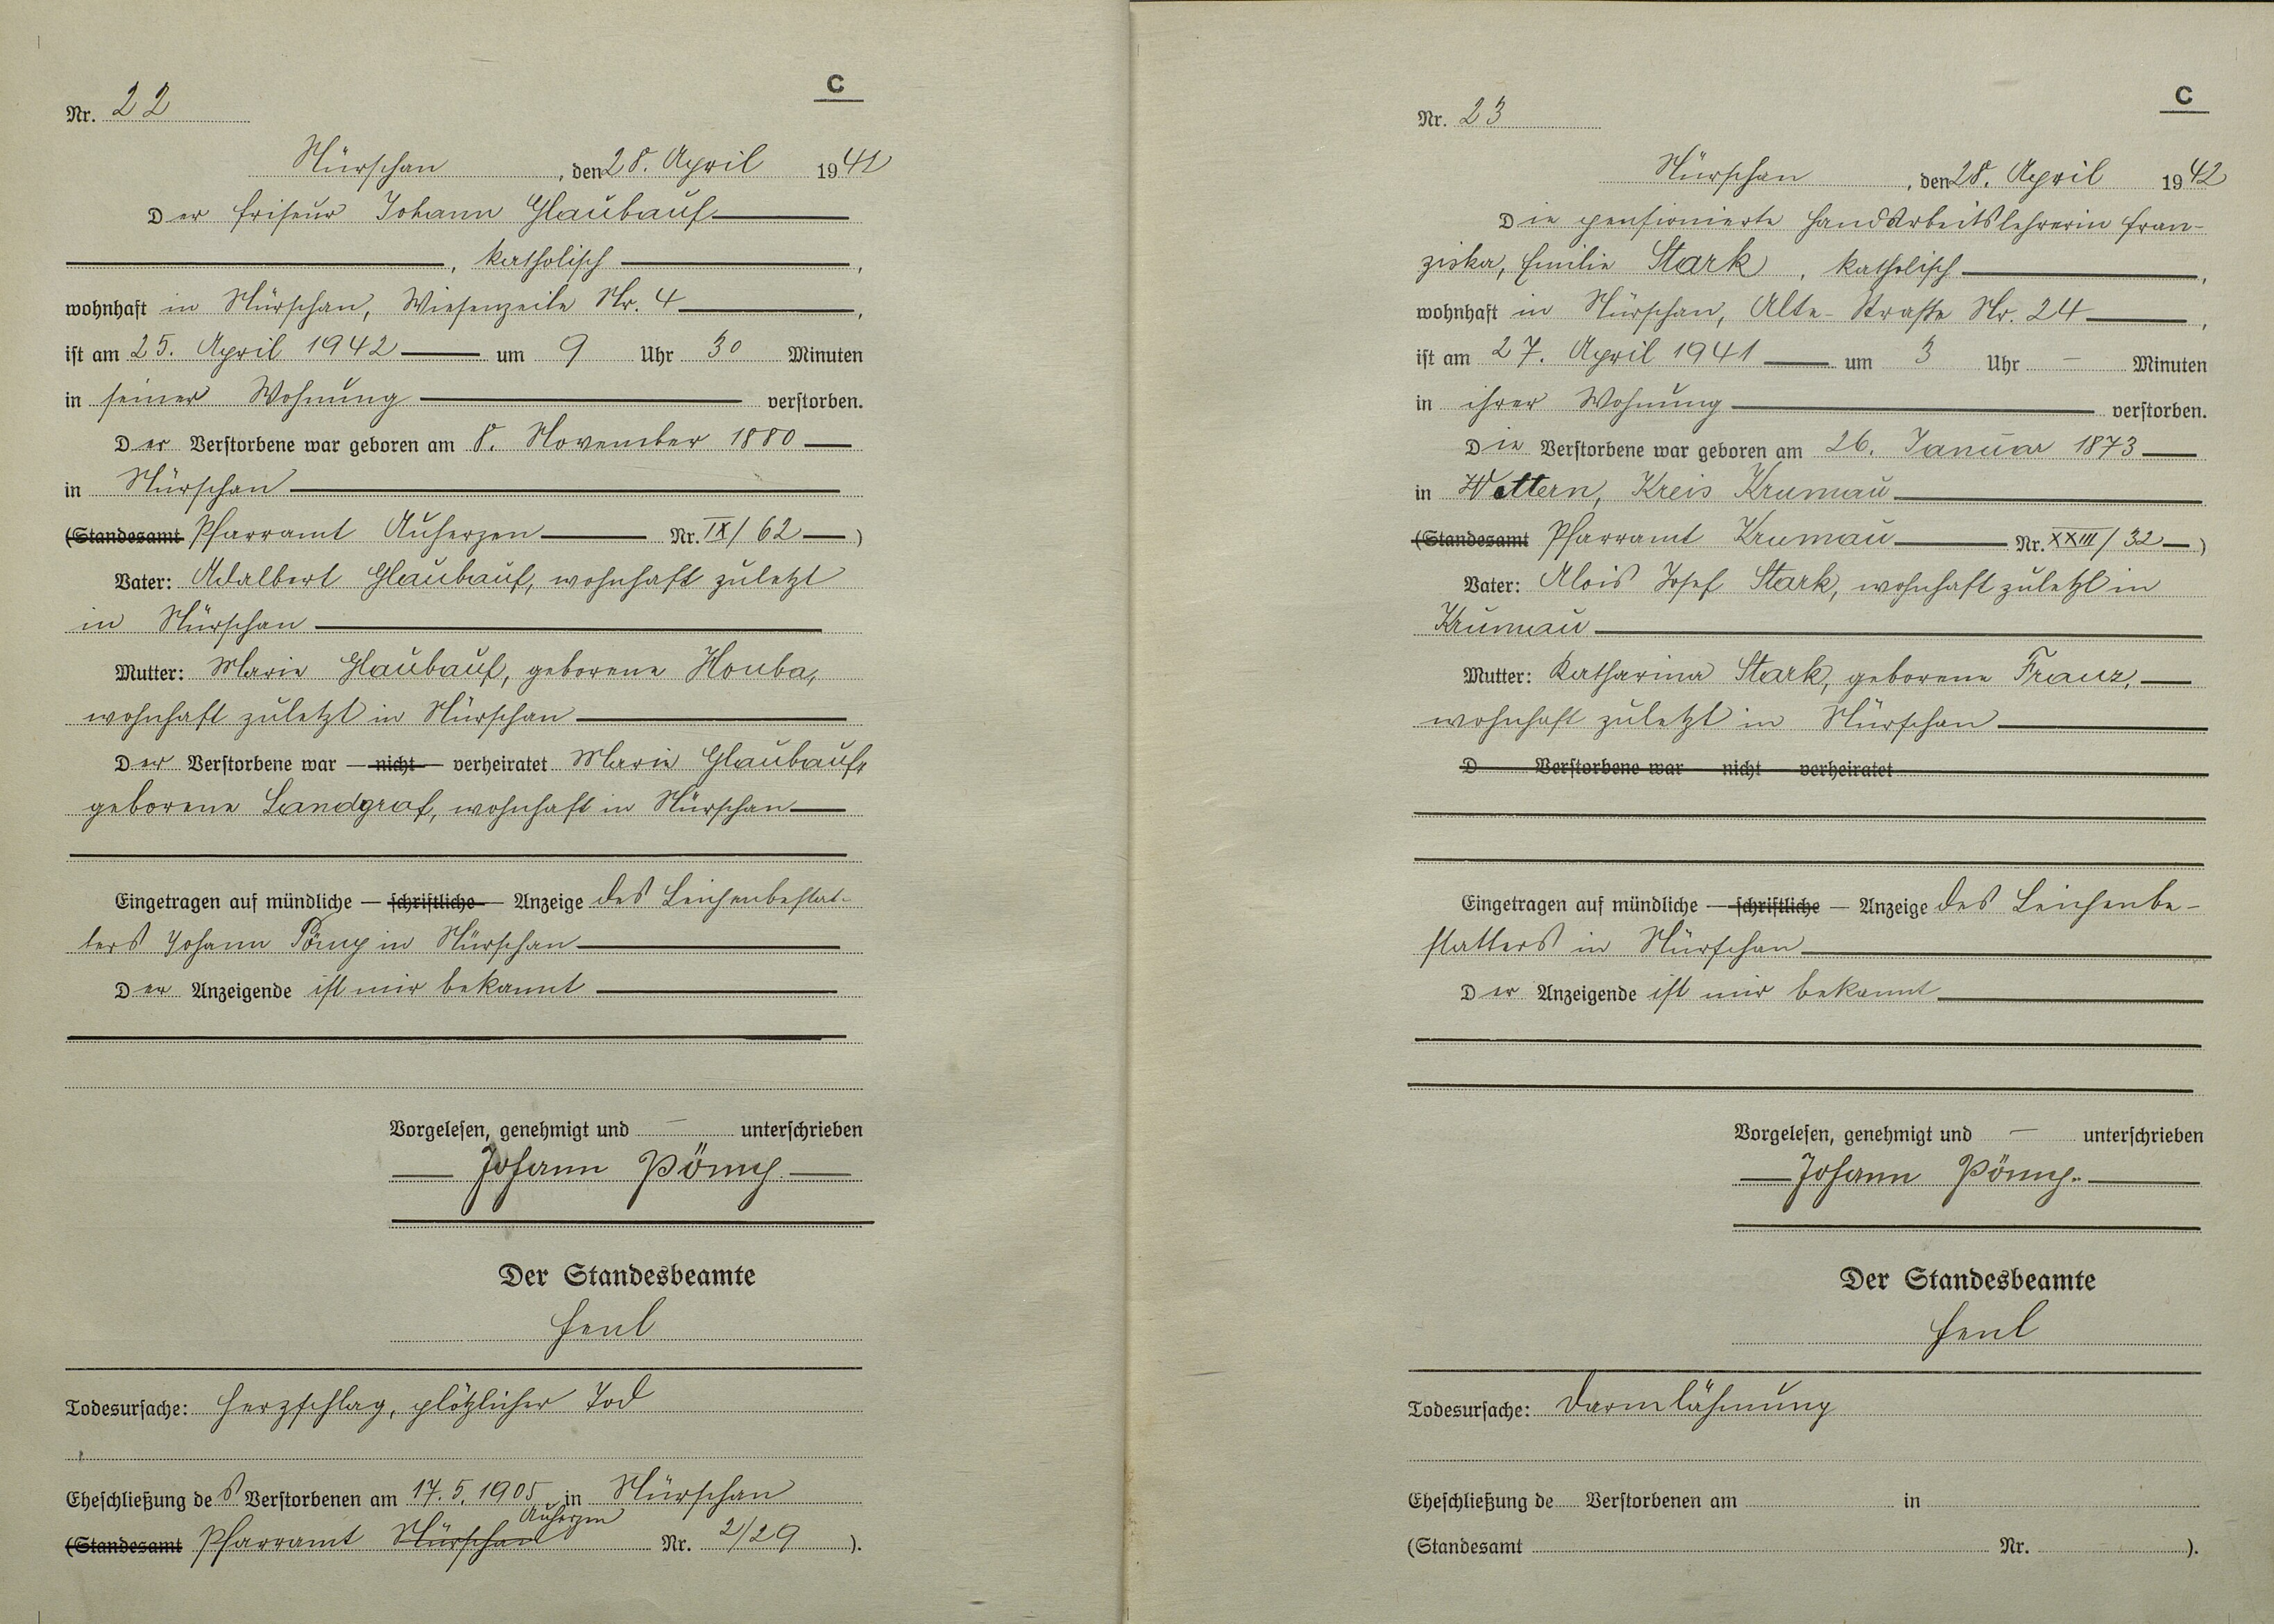 C
Nr. 22
Nürschan, den 28. April 1942
Der Friseur Johann Glaubauf
, katholisch,
wohnhaft in Nürschan, Wiesenzeile Nr. 4,
ist am 25. April 1942 um 9 Uhr 30 Minuten
in seiner Wohnung verstorben.
Der Verstorbene war geboren am 8. November 1880
in Nürschan
(Standesamt Pfarramt Auherzen Nr. IX/62)
Vater: Adalbert Glaubauf, wohnhaft zuletzt
in Nürschan
Mutter: Marie Glaubauf, geborene Houba,
wohnhaft zuletzt in Nürschan
Der Verstorbene war — nicht — verheiratet Marie Glaubauf,
geborene Landgraf, wohnhaft in Nürschan
Eingetragen auf mündliche — schriftliche — Anzeige des Leichenbestat-
ters Johann Pömp in Nürschan
Der Anzeigende ist mir bekannt
Vorgelesen, genehmigt und — unterschrieben
Johann Pömp.
Der Standesbeamte
Henl
Todesursache: Herzschlag, plötzlicher Tod
Eheschließung des Verstorbenen am 17.5.1905 in Nürschan
Auherzen
(Standesamt Pfarramt Nürschan Nr. 2/29).
C
Nr. 23
Nürschan, den 28. April 1942
Die pensionierte Handarbeitslehrerin Fran-
ziska, Emilie Stark, katholisch,
wohnhaft in Nürschan, Alte-Straße Nr. 24,
ist am 27. April 1941 um 3 Uhr — Minuten
in ihrer Wohnung verstorben.
Die Verstorbene war geboren am 26. Januar 1873
in Wettern, Kreis Krumau
(Standesamt Pfarramt Krumau Nr. XXIII/32)
Vater: Alois Josef Stark, wohnhaft zuletzt in
Krumau
Mutter: Katharina Stark, geborene Franz,
wohnhaft zuletzt in Nürschan
D Verstorbene war nicht verheiratet
Eingetragen auf mündliche — schriftliche — Anzeige des Leichenbe-
statters in Nürschan
Der Anzeigende ist mir bekannt
Vorgelesen, genehmigt und — unterschrieben
Johann Pömp.
Der Standesbeamte
Henl
Todesursache: Darmlähmung
Eheschließung de Verstorbenen am in
(Standesamt Nr. ).